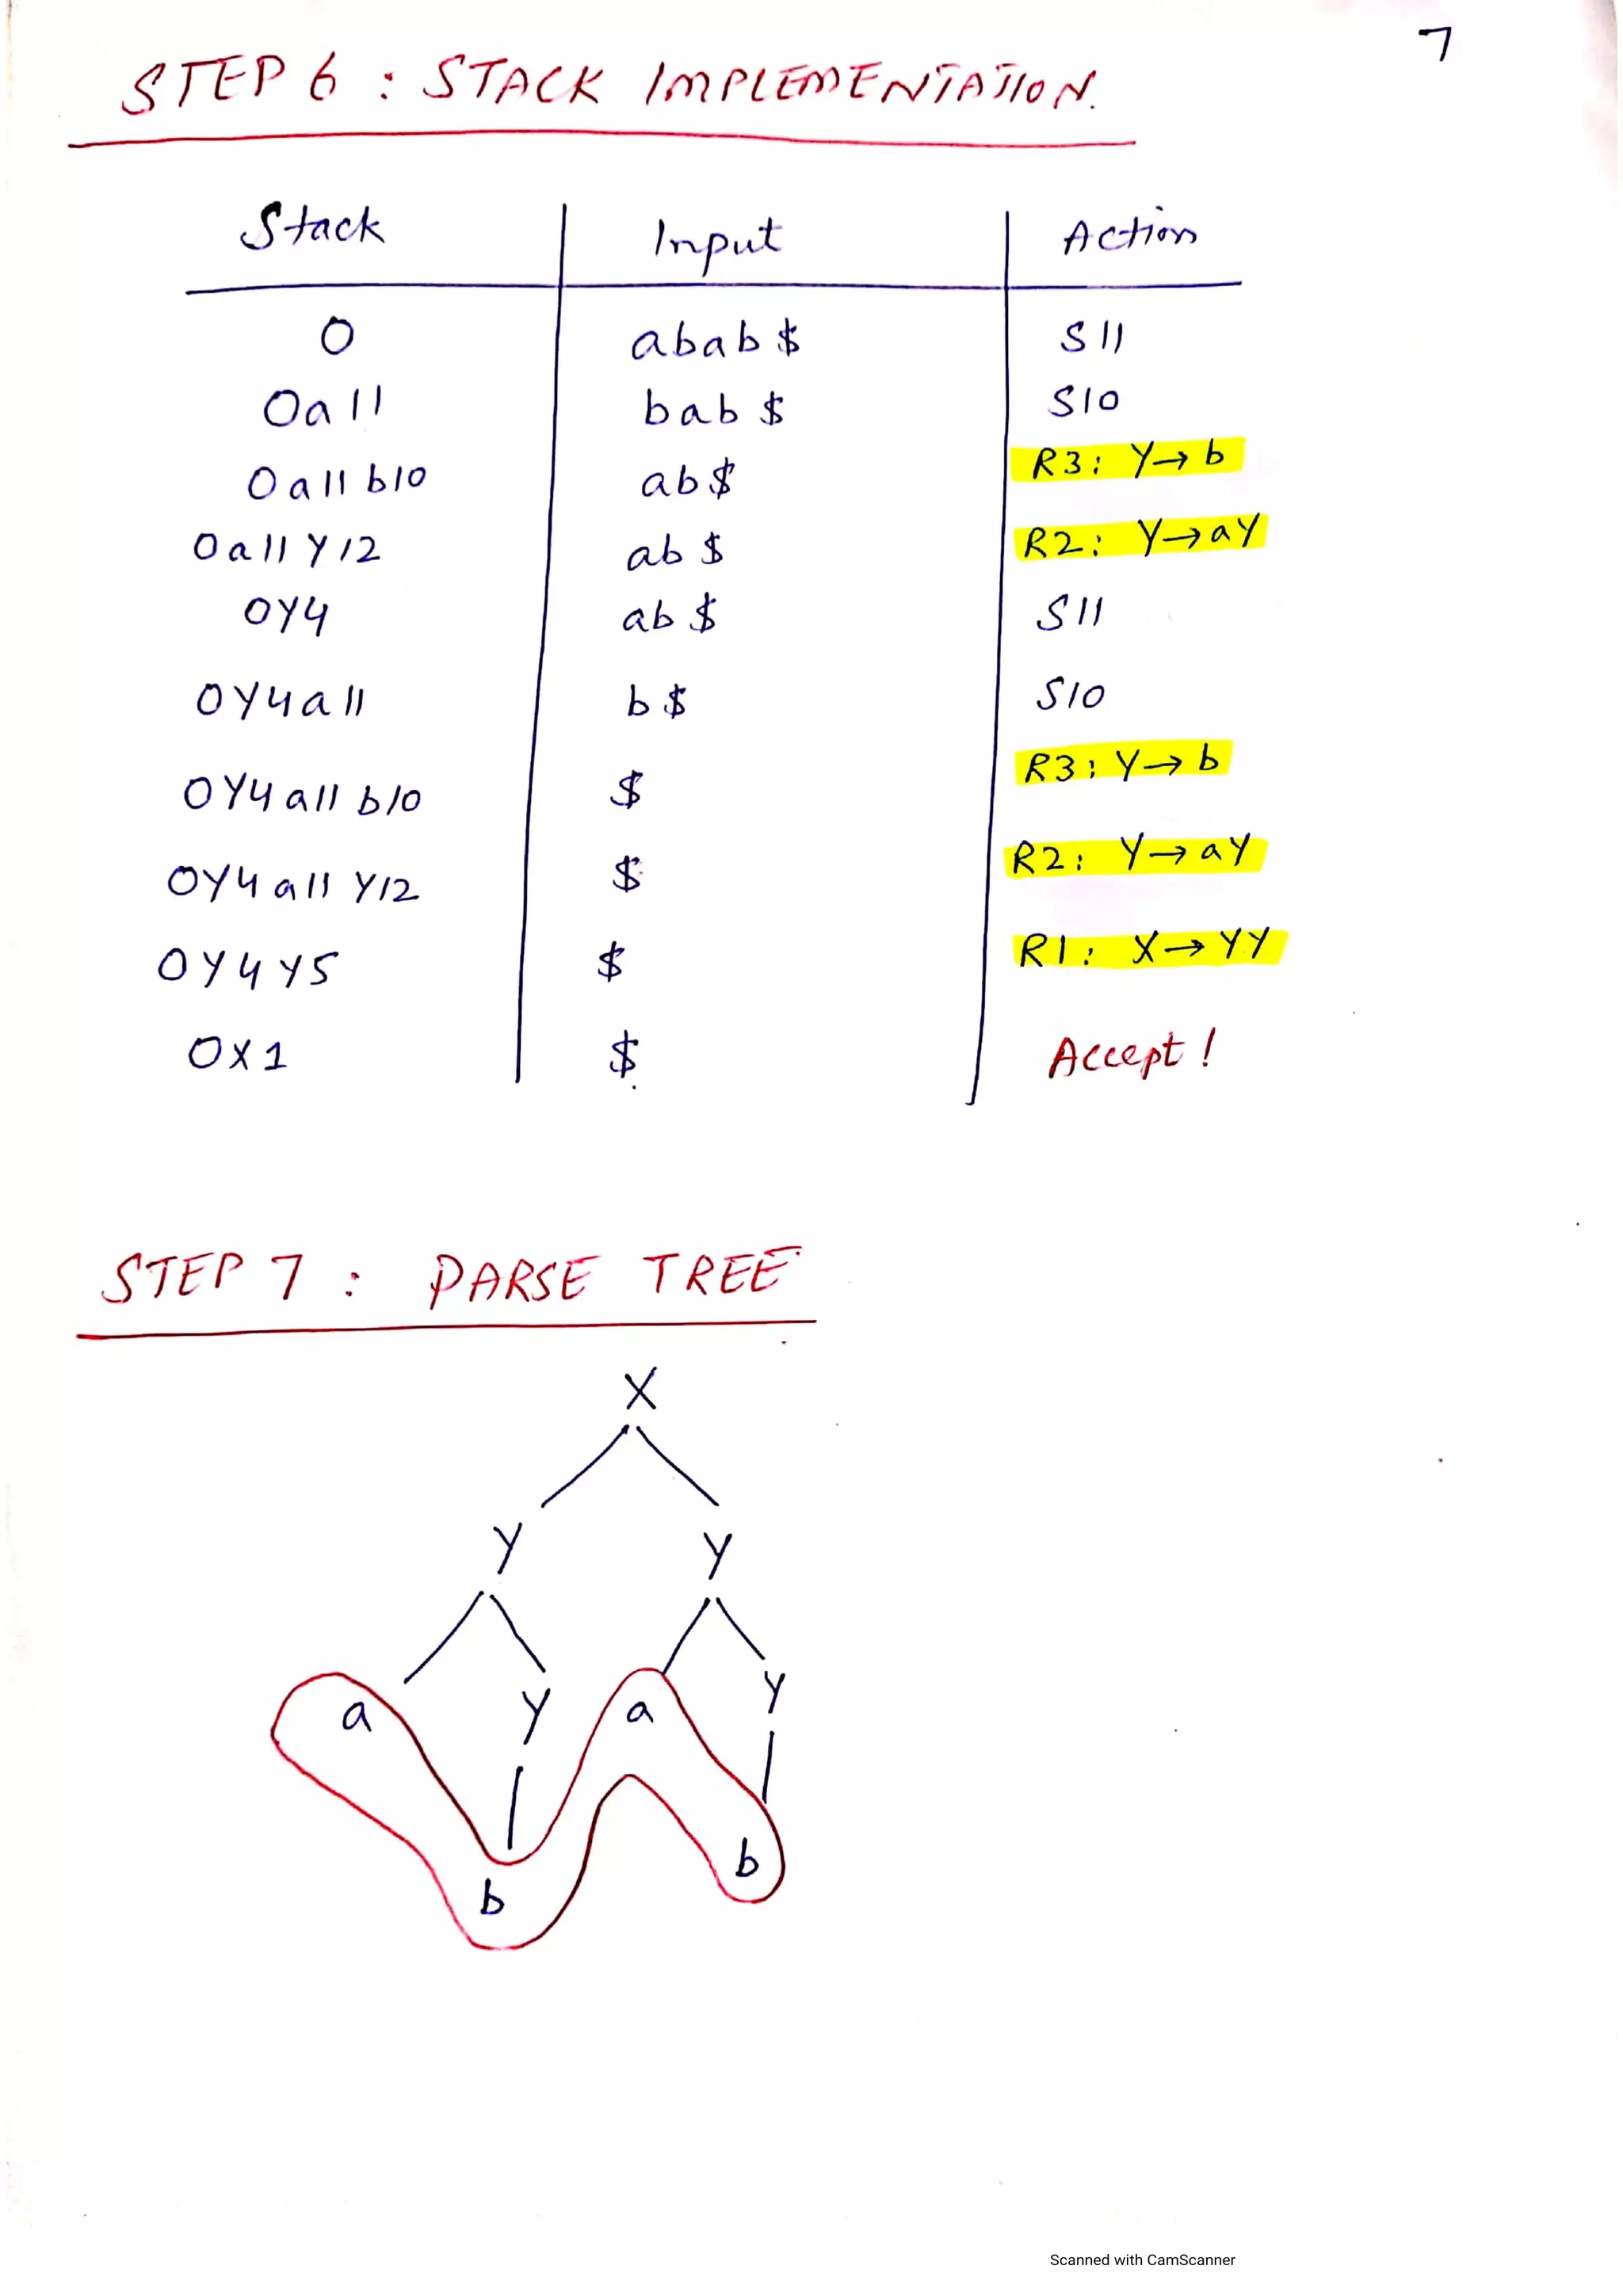 7
STEP 6 : STACK IMPLEMENTATION.
Stack Input Action
0 abab$ S11
0a11 bab$ S10
0a11b10 ab$ R3: Y→b
0a11Y12 ab$ R2: Y→aY
0Y4 ab$ S11
0Y4a11 b$ S10
0Y4a11b10 $ R3: Y→b
0Y4a11Y12 $ R2: Y→aY
0Y4Y5 $ R1: X→YY
0X1 $ Accept!
STEP 7 : PARSE TREE
X
Y Y
a Y a Y
b b
Scanned with CamScanner